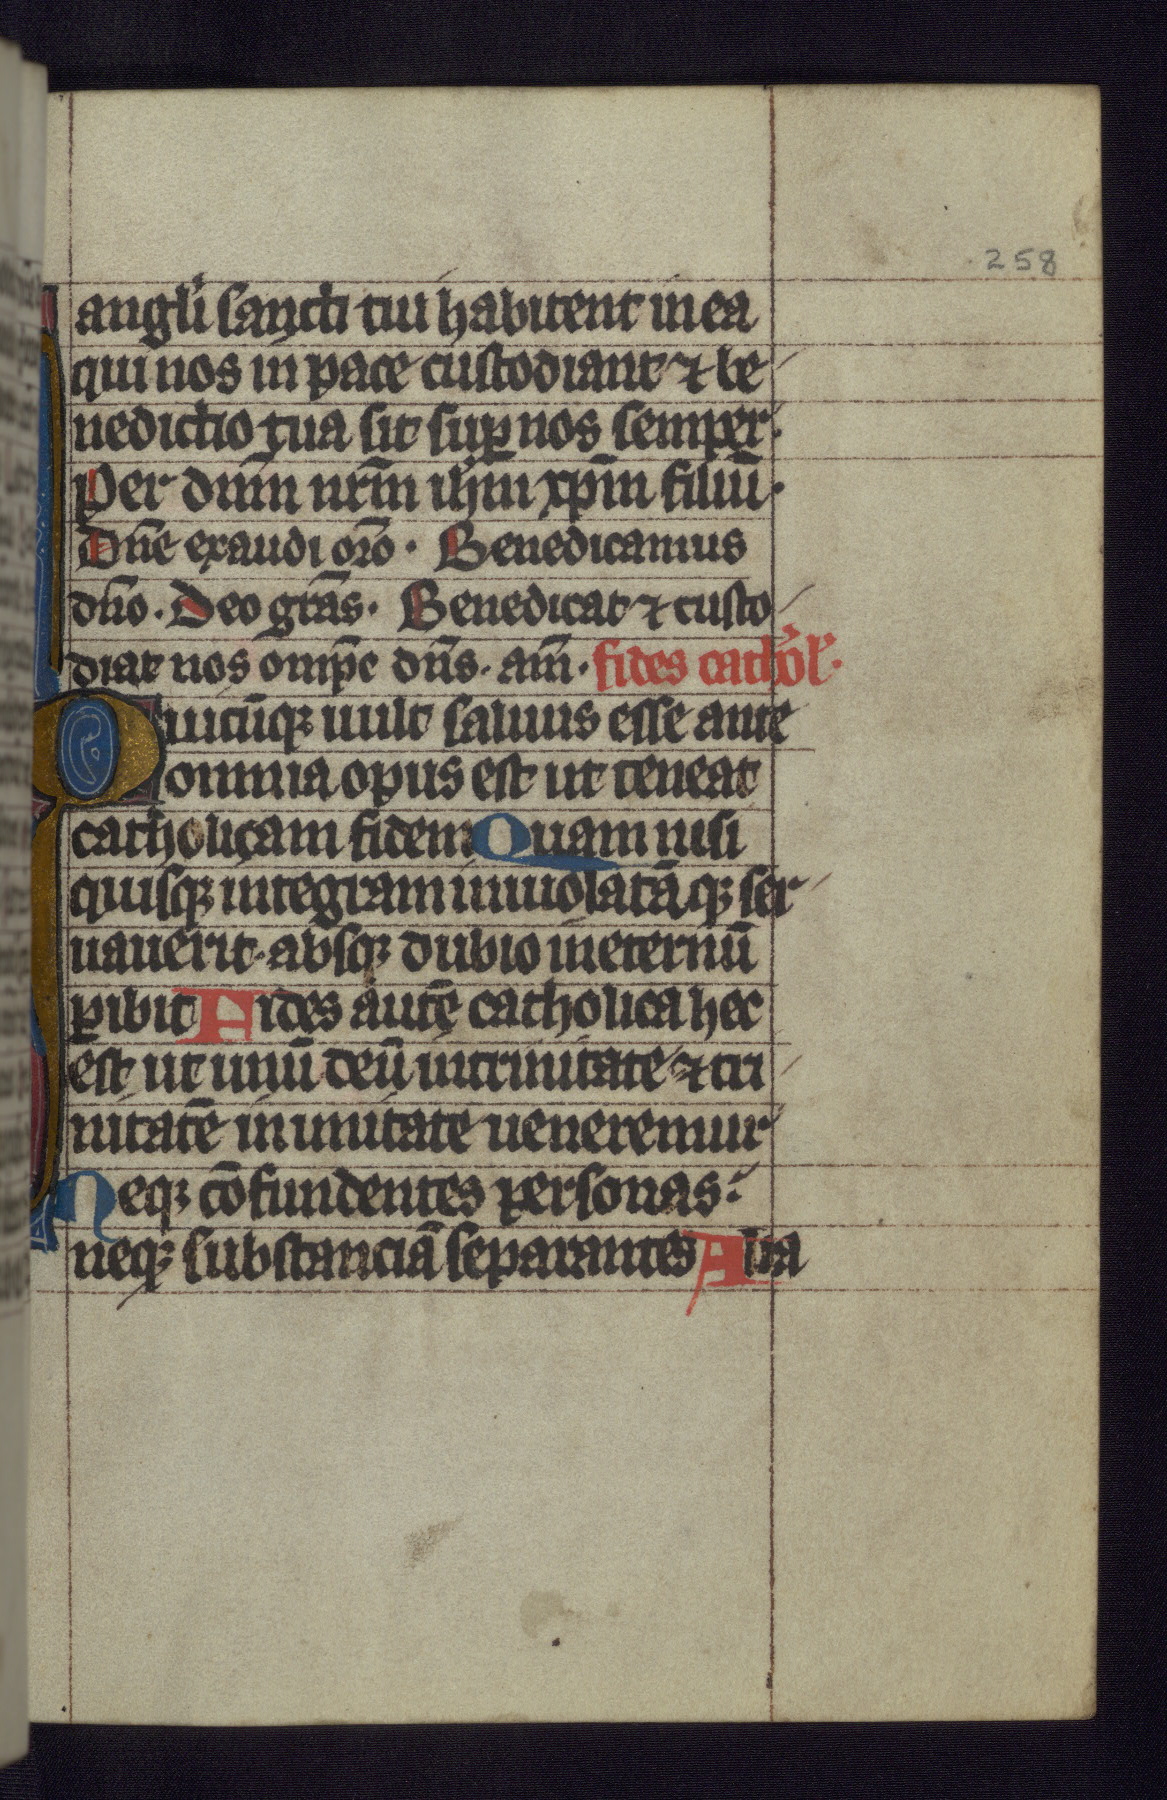 258
angl'i sancti tui habitent in ea
qui nos in pace custodiant ⁊ be
nedictio tua sit sup nos semper.
Per dn̄m nr̄m ih̄m xp̄m filiū.
Dn̄e exaudi or̄o. Benedicamus
dn̄o. Deo gr̄as. Benedicat ⁊ custo
diat nos omp̄c dn̄s. am̄. fides cathol'.
Quicūqꝫ uult saluus esse ante
omnia opus est ut teneat
catholicam fidem Quam nisi
quisqꝫ integram inuiolatāqꝫ ser
uauerit. absqꝫ dubio ineternū
ꝑibit Fides autē catholica hec
est ut unū deū in trinitate ⁊ tri
nitatē in unitate ueneremur
Neqꝫ cōfundentes personas:
neqꝫ substanciā separantes Alia